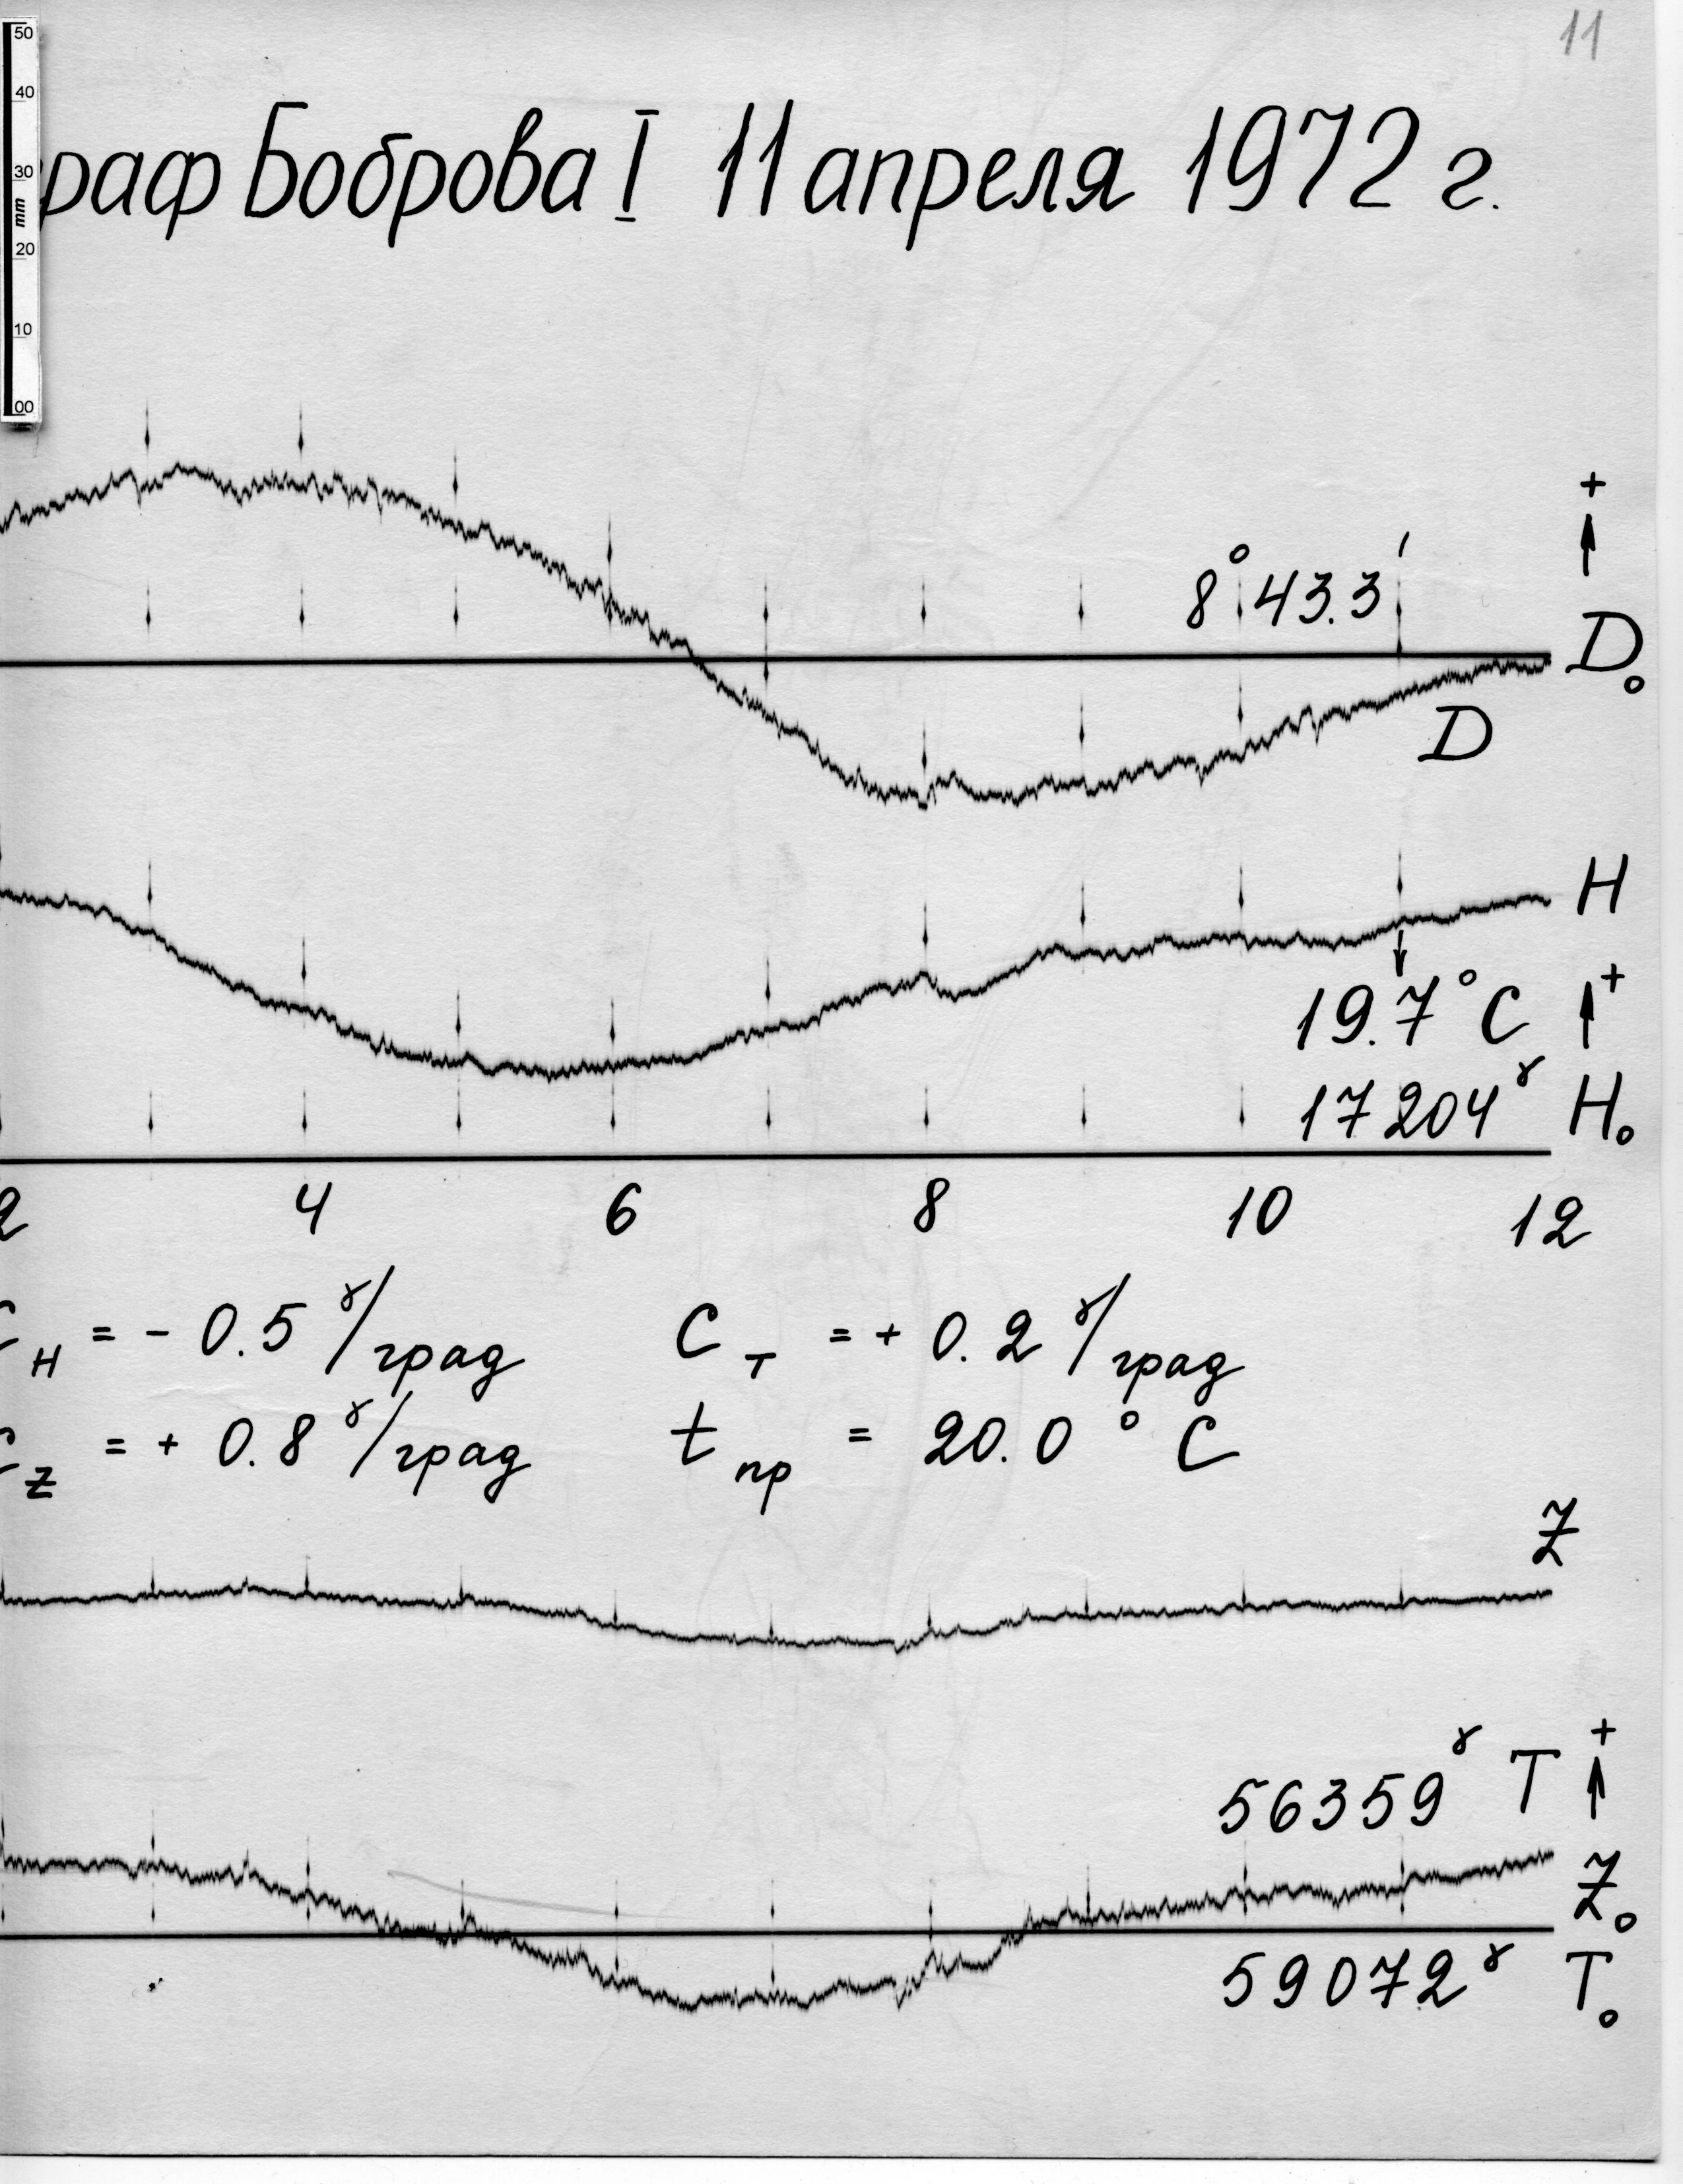 11
50
40
30
mm
20
10
00
граф Боброва I 11 апреля 1972 г.
+
8° 43.3′
D₀
D
H
19.7°C +
17204ˠ H₀
2 4 6 8 10 12
C_H = - 0.5 ˠ/град C_T = + 0.2 ˠ/град
C_Z = + 0.8 ˠ/град t_пр = 20.0 °C
Z
+
56359ˠ T
Z₀
59072ˠ T₀